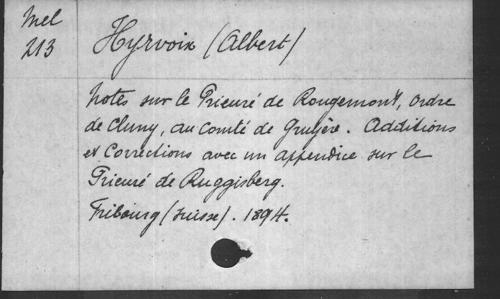 Mel
213
Hyrvoix (Albert)
Notes sur le Prieuré de Rougemont, ordre
de Cluny, au Comté de Gruyère. Additions
et Corrections avec un appendice sur le
Prieuré de Ruggisberg.
Fribourg (Suisse). 1894.